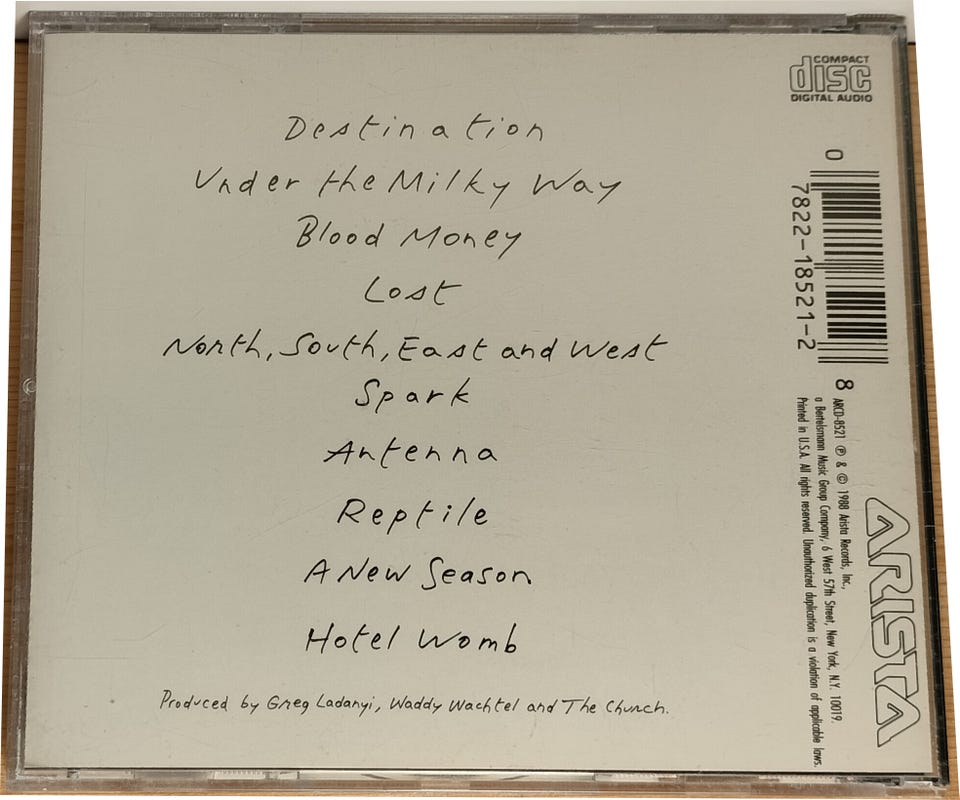 COMPACT
disc
DIGITAL AUDIO
Destination
Under the Milky Way
Blood Money
Lost
North, South, East and West
Spark
Antenna
Reptile
A New Season
Hotel Womb
Produced by Greg Ladanyi, Waddy Wachtel and The Church.
0 7822-18521-2 8
ARCD-8521 ℗ & © 1988 Arista Records, Inc.,
a Bertelsmann Music Group Company, 6 West 57th Street, New York, N.Y. 10019.
Printed in U.S.A. All rights reserved. Unauthorized duplication is a violation of applicable laws.
ARISTA